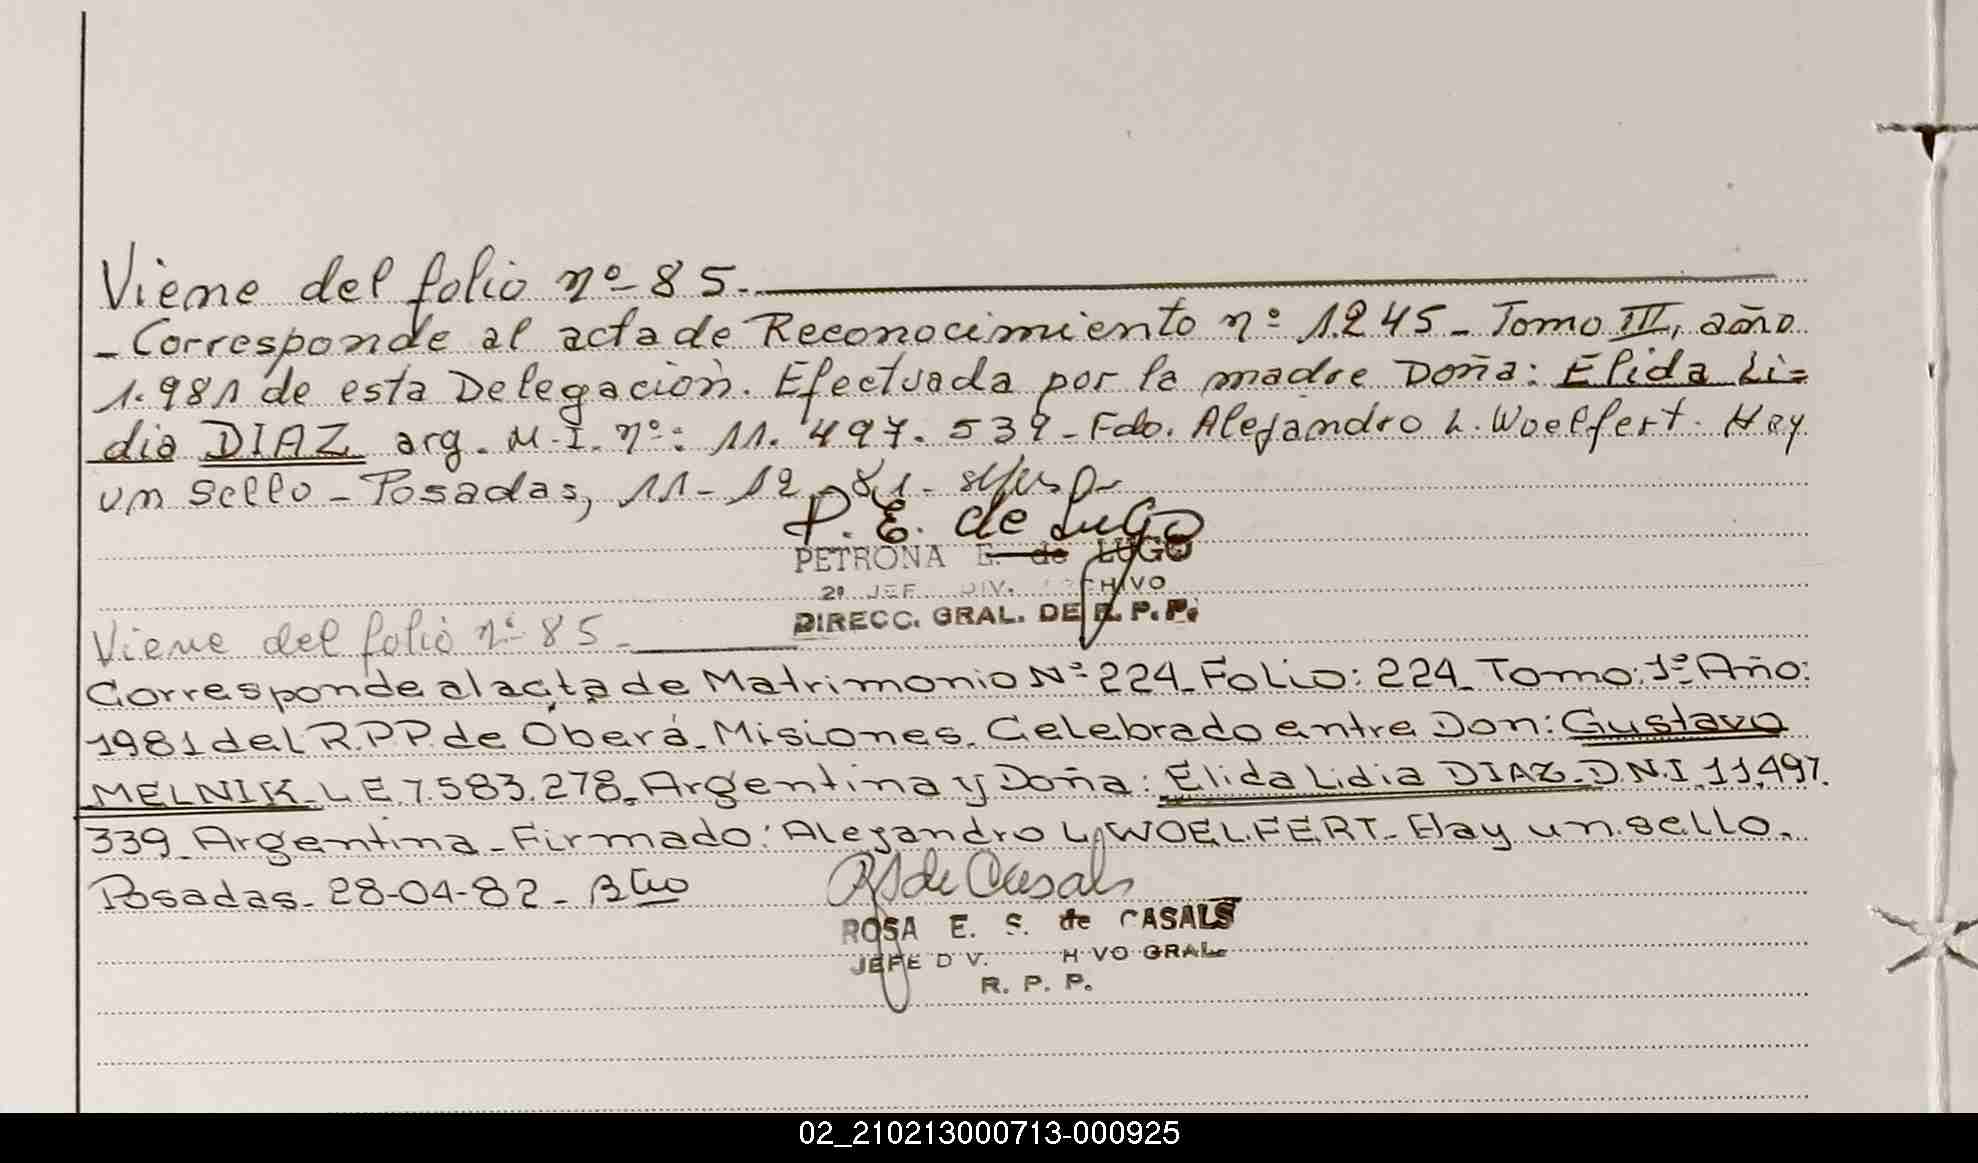 Viene del folio nº 85.
- Corresponde al acta de Reconocimiento nº 1.245 - Tomo III, año
1.981 de esta Delegación. Efectuada por la madre Doña: Elida Li=
dia DIAZ arg. M.I. nº: 11.497.539 - Fdo. Alejandro L. Woelfert. Hay
un sello - Posadas, 11 - 12 - 81 -
P. E. de Lugo
PETRONA E. de LUGO
2º JEF DIV. HIVO
DIRECC. GRAL. DE R. P. P.
Viene del folio nº 85 -
Corresponde al acta de Matrimonio Nº 224 - Folio: 224 - Tomo: 1º Año:
1981 del R.P.P. de Oberá - Misiones. Celebrado entre Don: Gustavo
MELNIK - L.E. 7.583.278 - Argentina y Doña: Elida Lidia DIAZ - D.N.I. 11.497.
339 - Argentina - Firmado: Alejandro L. WOELFERT - Hay un sello.
Posadas - 28-04-82 -
RS de Casals
ROSA E. S. de CASALS
JEFE D V. H VO GRAL.
R. P. P.
02_210213000713-000925